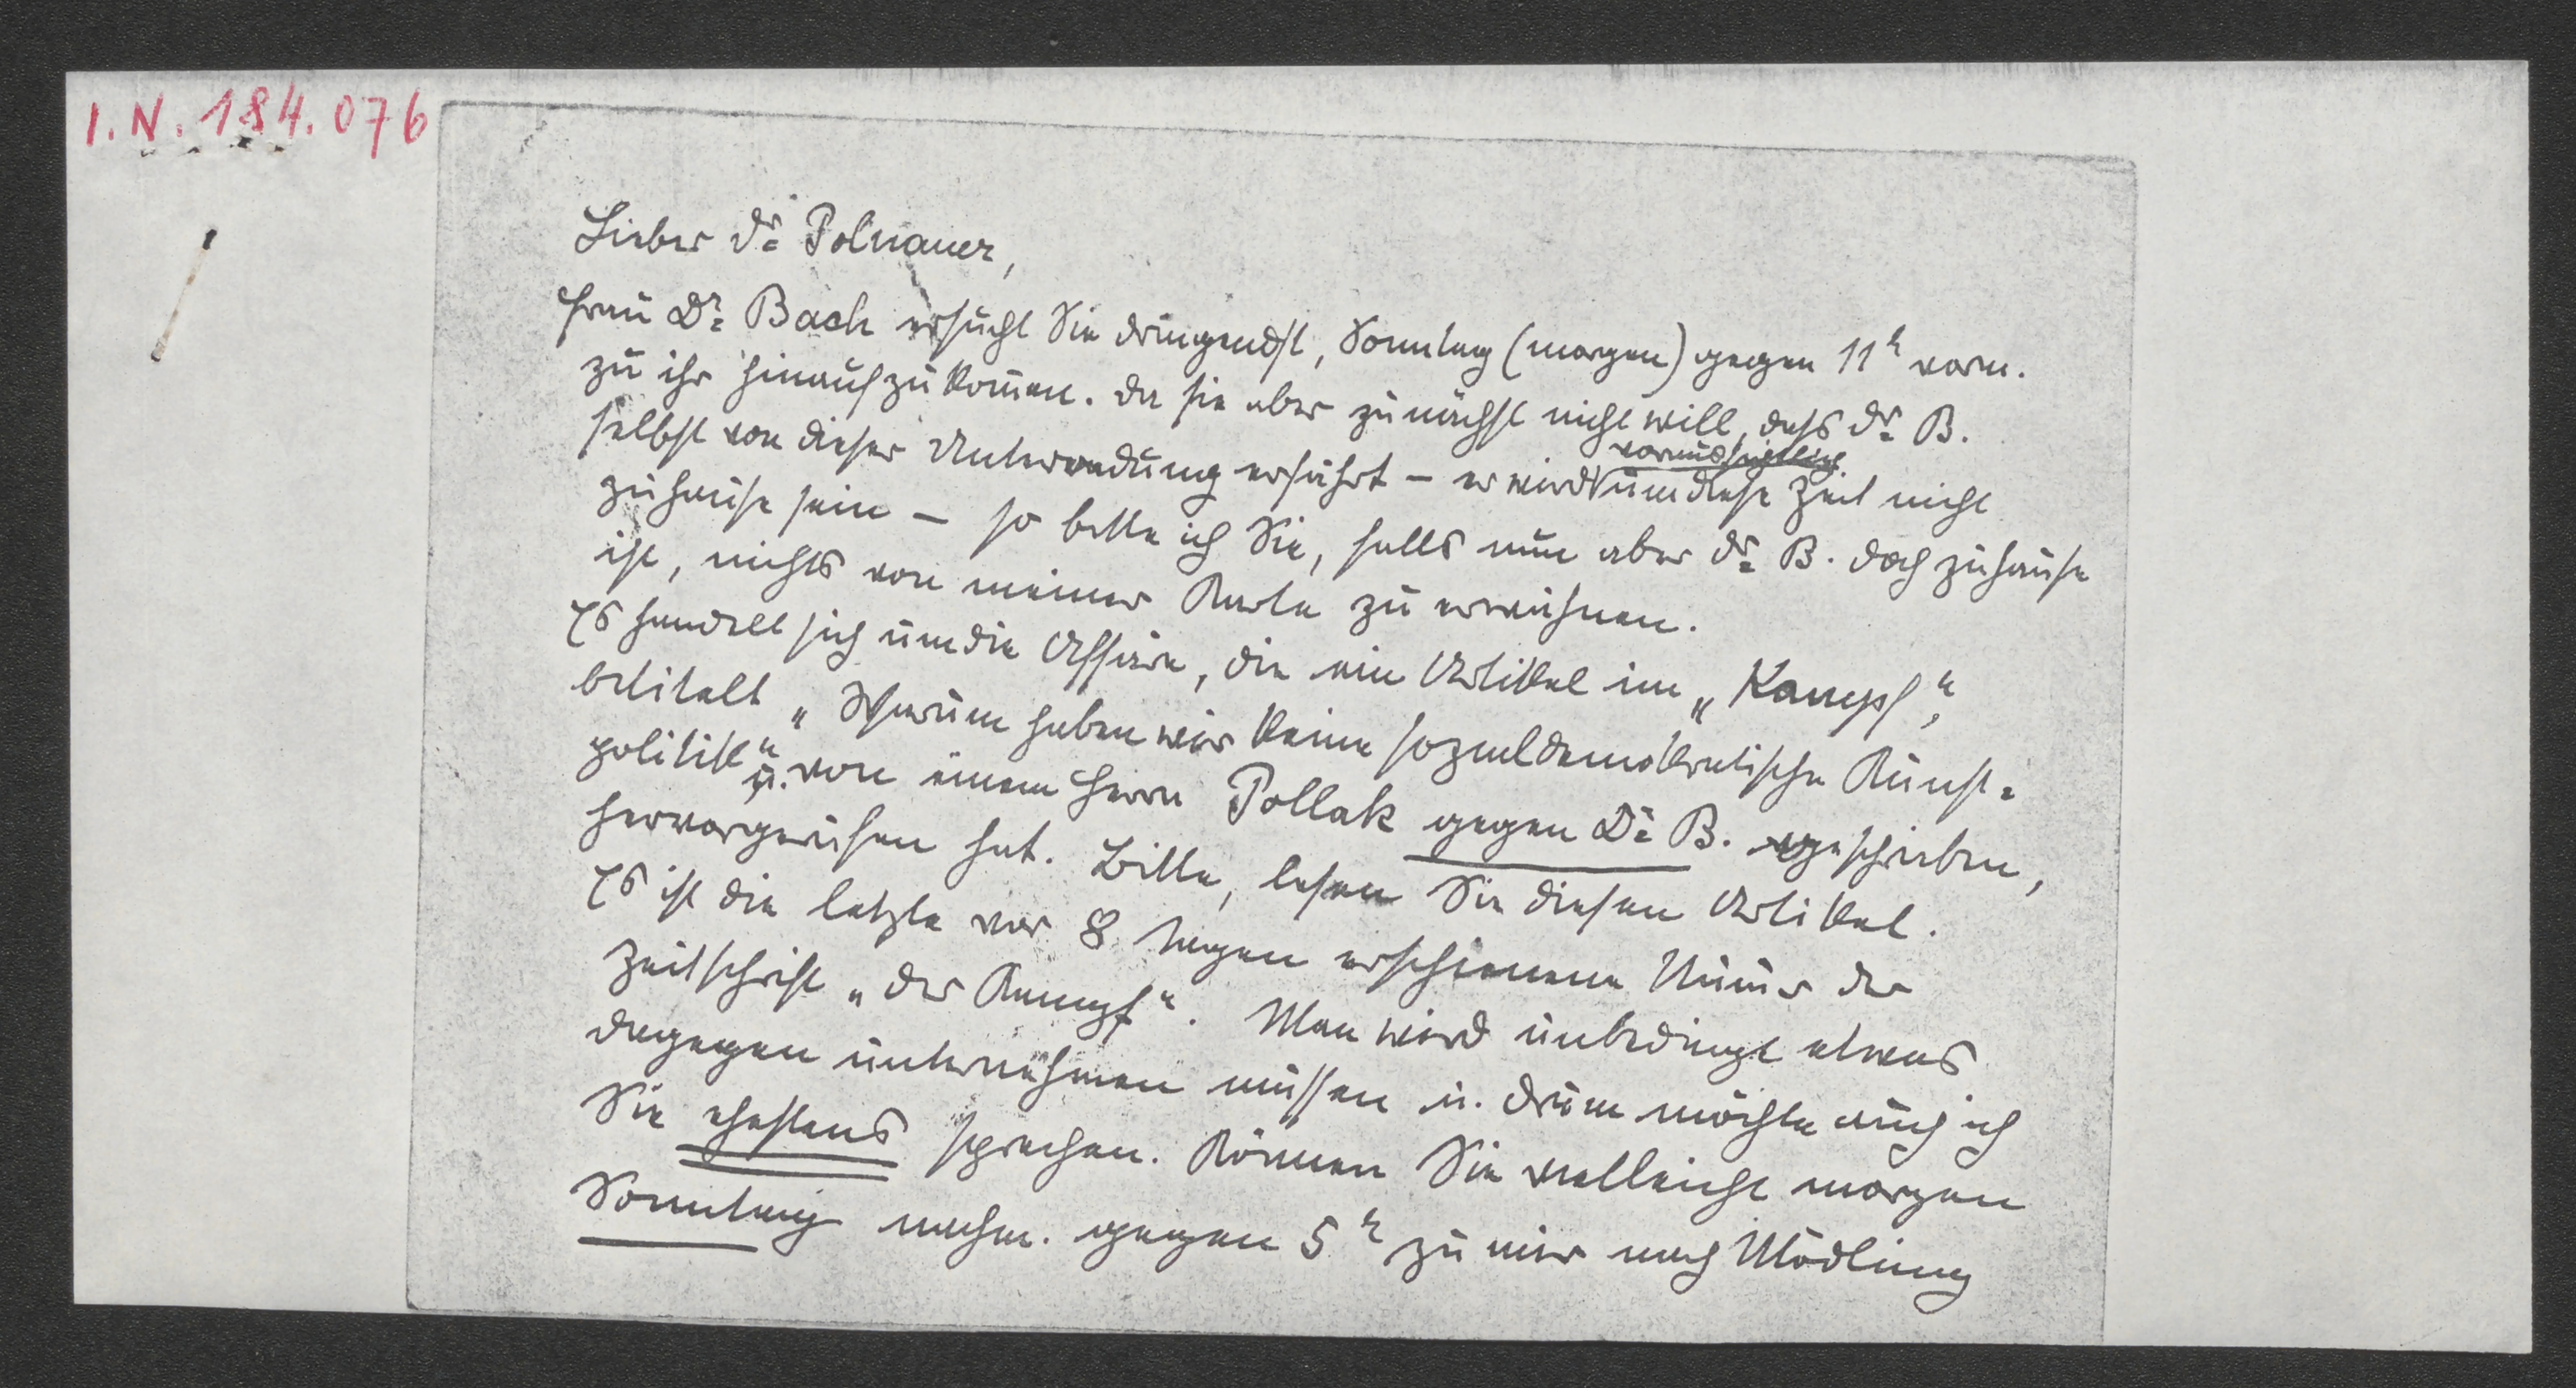 I.N. 184.076
Lieber Dr. Polnauer,
Frau Dr. Bach ersucht Sie dringendst, Sonntag (morgen) gegen 11h vorm.
zu ihr hinaufzukom̅en. Da sie aber zunächst nicht will, dass Dr. B.
selbst von dieser Unterredung erfährt – er wird um diese Zeit nicht
voraussichtlich
zuhause sein – so bitte ich Sie, falls nun aber Dr. B. doch zuhause
ist, nichts von meiner Karte zu erwähnen.
Es handelt sich um die Affäre, die ein Artikel im „Kampf",
betitelt „Warum haben wir keine sozialdemokratische Kunst=
politik" u. von einem Herrn Pollak gegen Dr. B. geschrieben,
hervorgerufen hat. Bitte, lesen Sie diesen Artikel.
Es ist die letzte vor 8 Tagen erschienene Num̅er der
Zeitschrift „Der Kampf". Man wird unbedingt etwas
dagegen unternehmen müssen u. drum möchte auch ich
Sie ehestens sprechen. Können Sie vielleicht morgen
Sonntag nachm. gegen 5h zu mir nach Mödling